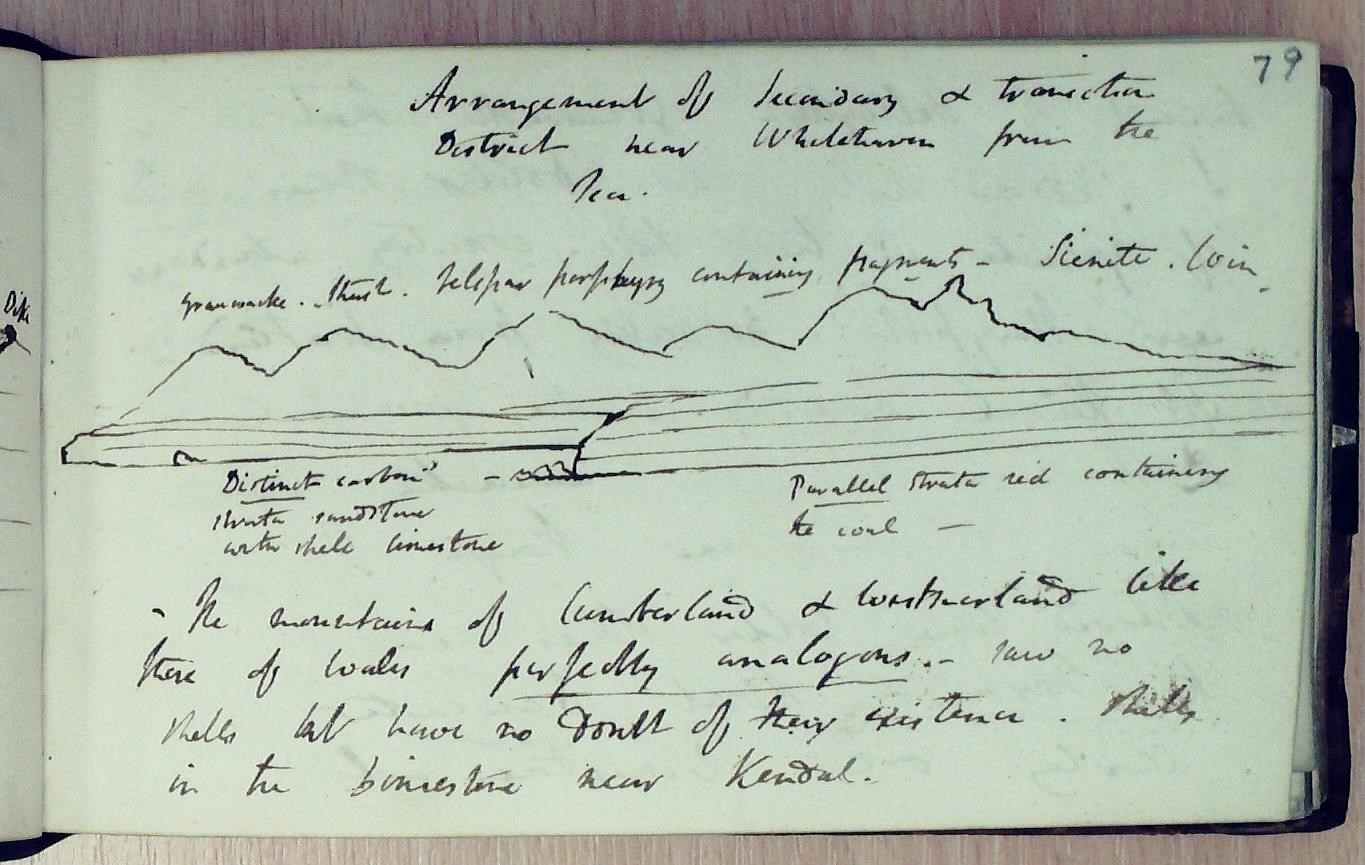 79
Arrangement of Secondary & transition
District near Whitehaven from the
Sea.
Grauwacke. Shist. Felspar porphyry containing fragments - Sienite.
Dike
Distinct carbon^s -
strata sandstone
with shell limestone
Parallel strata red containing
the coal -
- The mountains of Cumberland & Westmerland like
those of Wales perfectly analogous. - saw no
shells but have no doubt of their existence. Shells
in the limestone near Kendal.